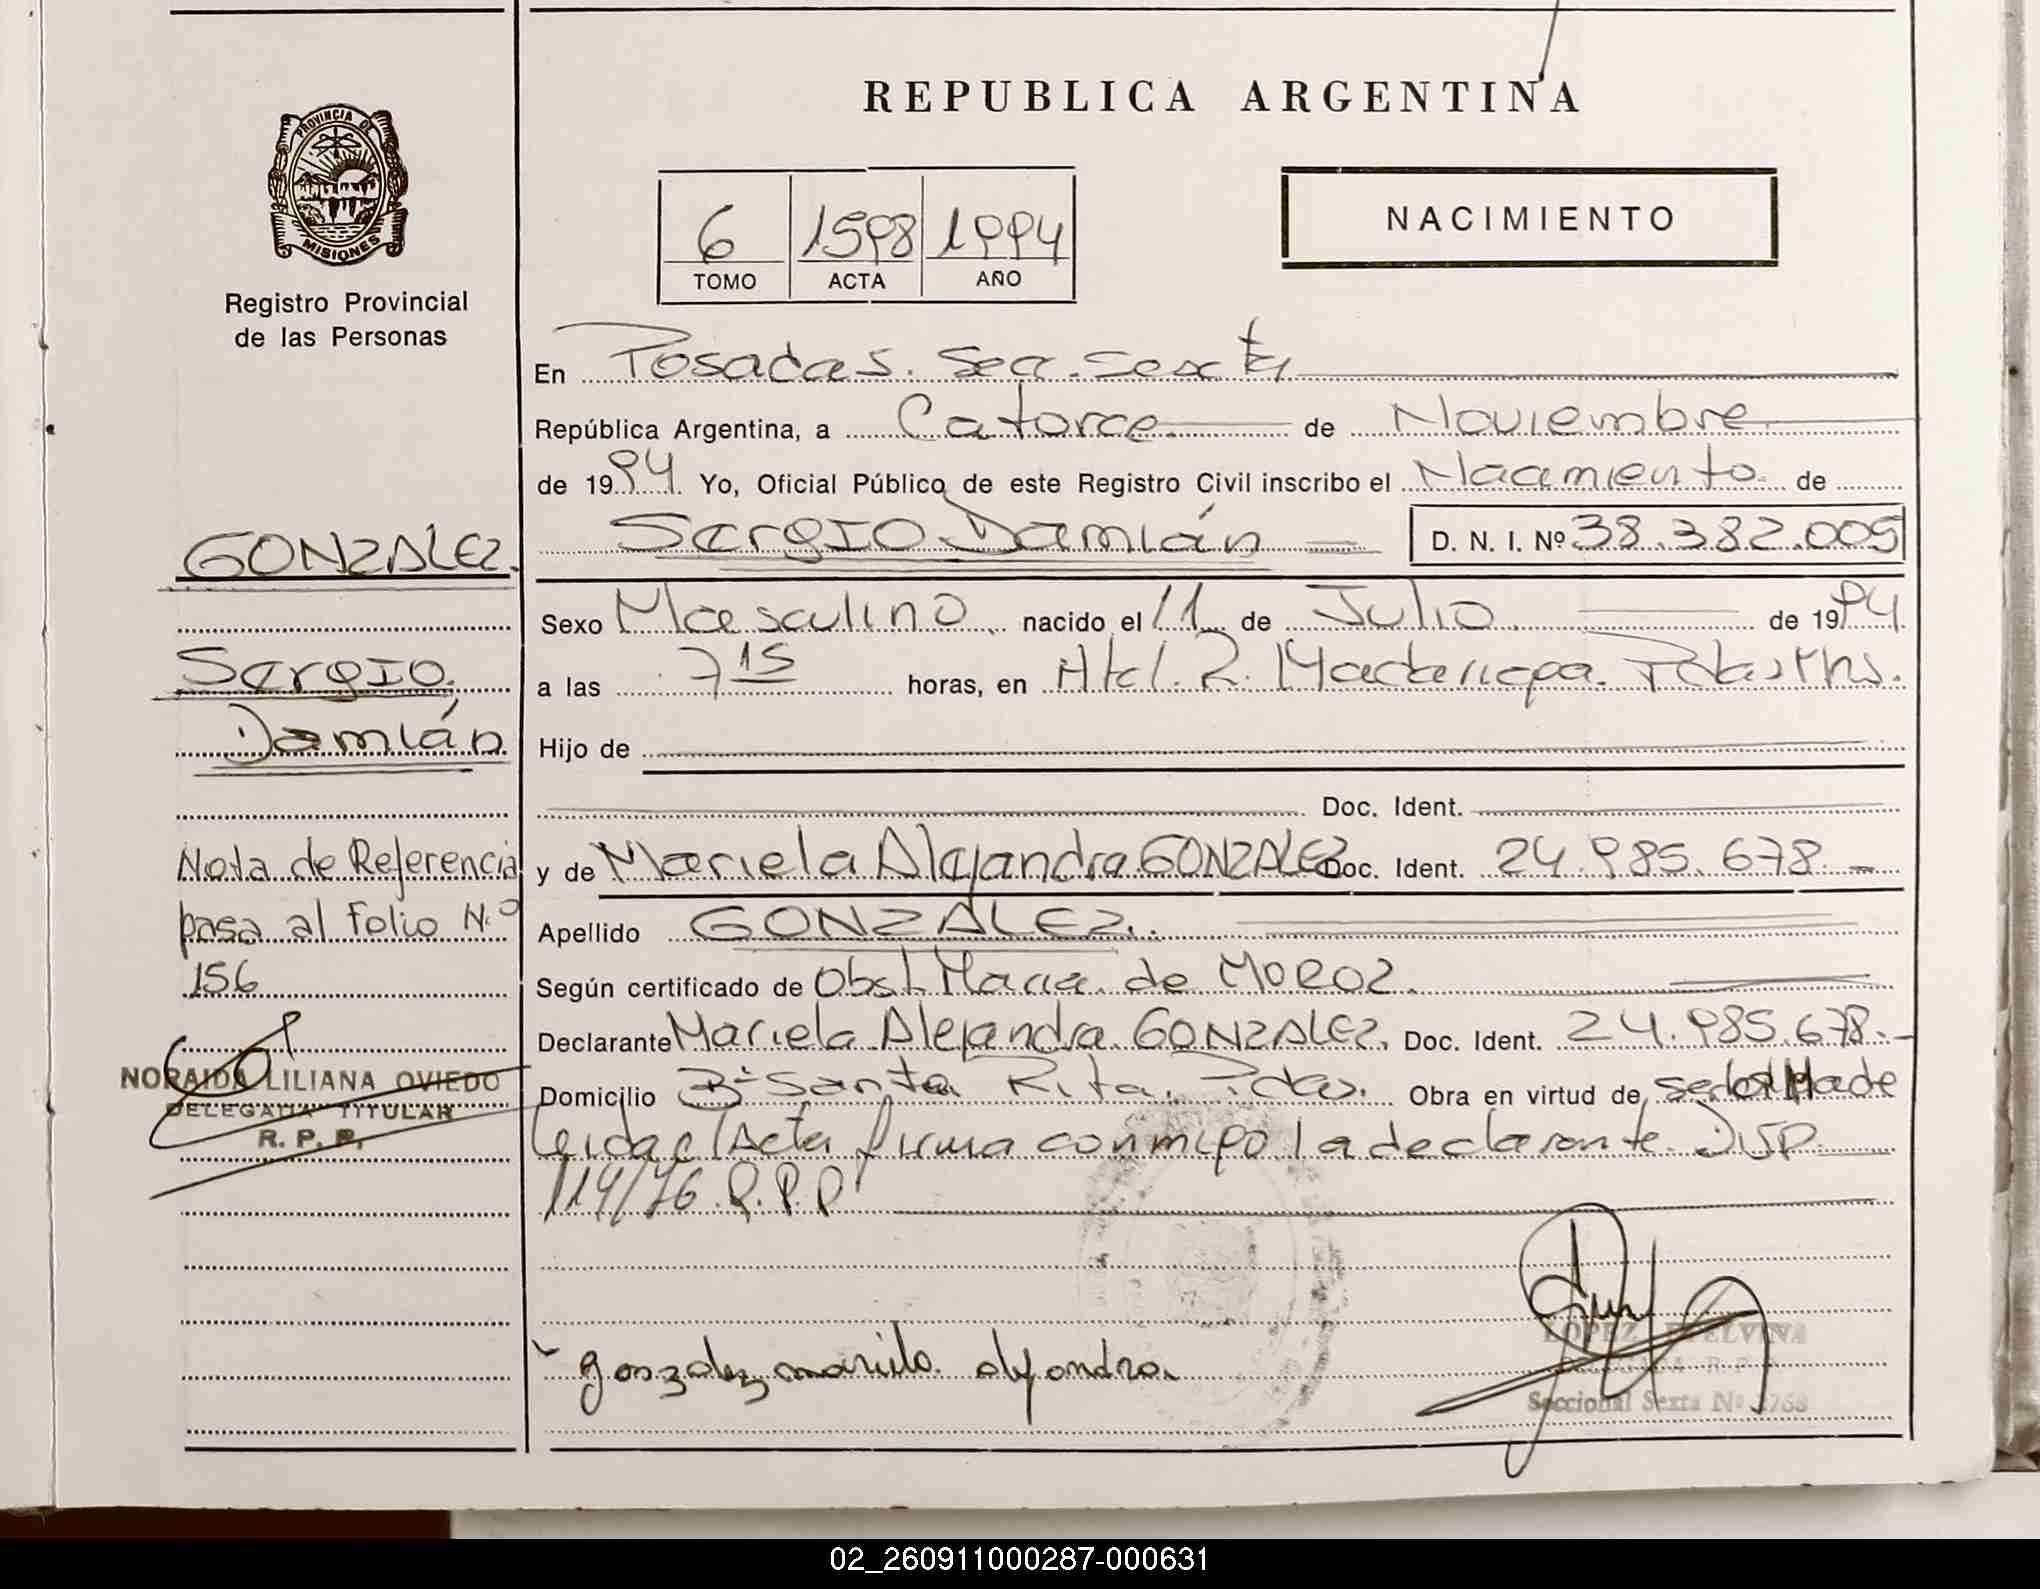 REPUBLICA ARGENTINA
PROVINCIA DE
MISIONES
Registro Provincial
de las Personas
6 1598 1994
TOMO ACTA AÑO
NACIMIENTO
En Posadas. Sec. Sexta
República Argentina, a Catorce de Noviembre
de 1994. Yo, Oficial Público de este Registro Civil inscribo el Nacimiento de
Sergio Damián D. N. I. Nº 38.382.005
GONZALEZ.
Sergio.
Damián
Sexo Masculino nacido el 11 de Julio de 1994
a las 7 15 horas, en Htal. R. Madariaga. Pdas. Mns.
Hijo de
Doc. Ident.
y de Mariela Alejandra GONZALEZ Doc. Ident. 24.985.678
Apellido GONZALEZ.
Según certificado de Obst. Maria de MOROZ.
Declarante Mariela Alejandra GONZALEZ. Doc. Ident. 24.985.678.
Domicilio Bº Santa Rita. Pdas. Obra en virtud de ser la Made
Leida el Acta firma conmigo la declarante. Disp.
114/76. R.P.P
Nota de Referencia
pasa al folio N.º
156
NORAIDA LILIANA OVIEDO
DELEGADA TITULAR
R. P. P.
gonzalez mariela alejandra
LOPEZ ETELVINA
DELEGADA R. P. P.
Seccional Sexta Nº 2768
02_260911000287-000631